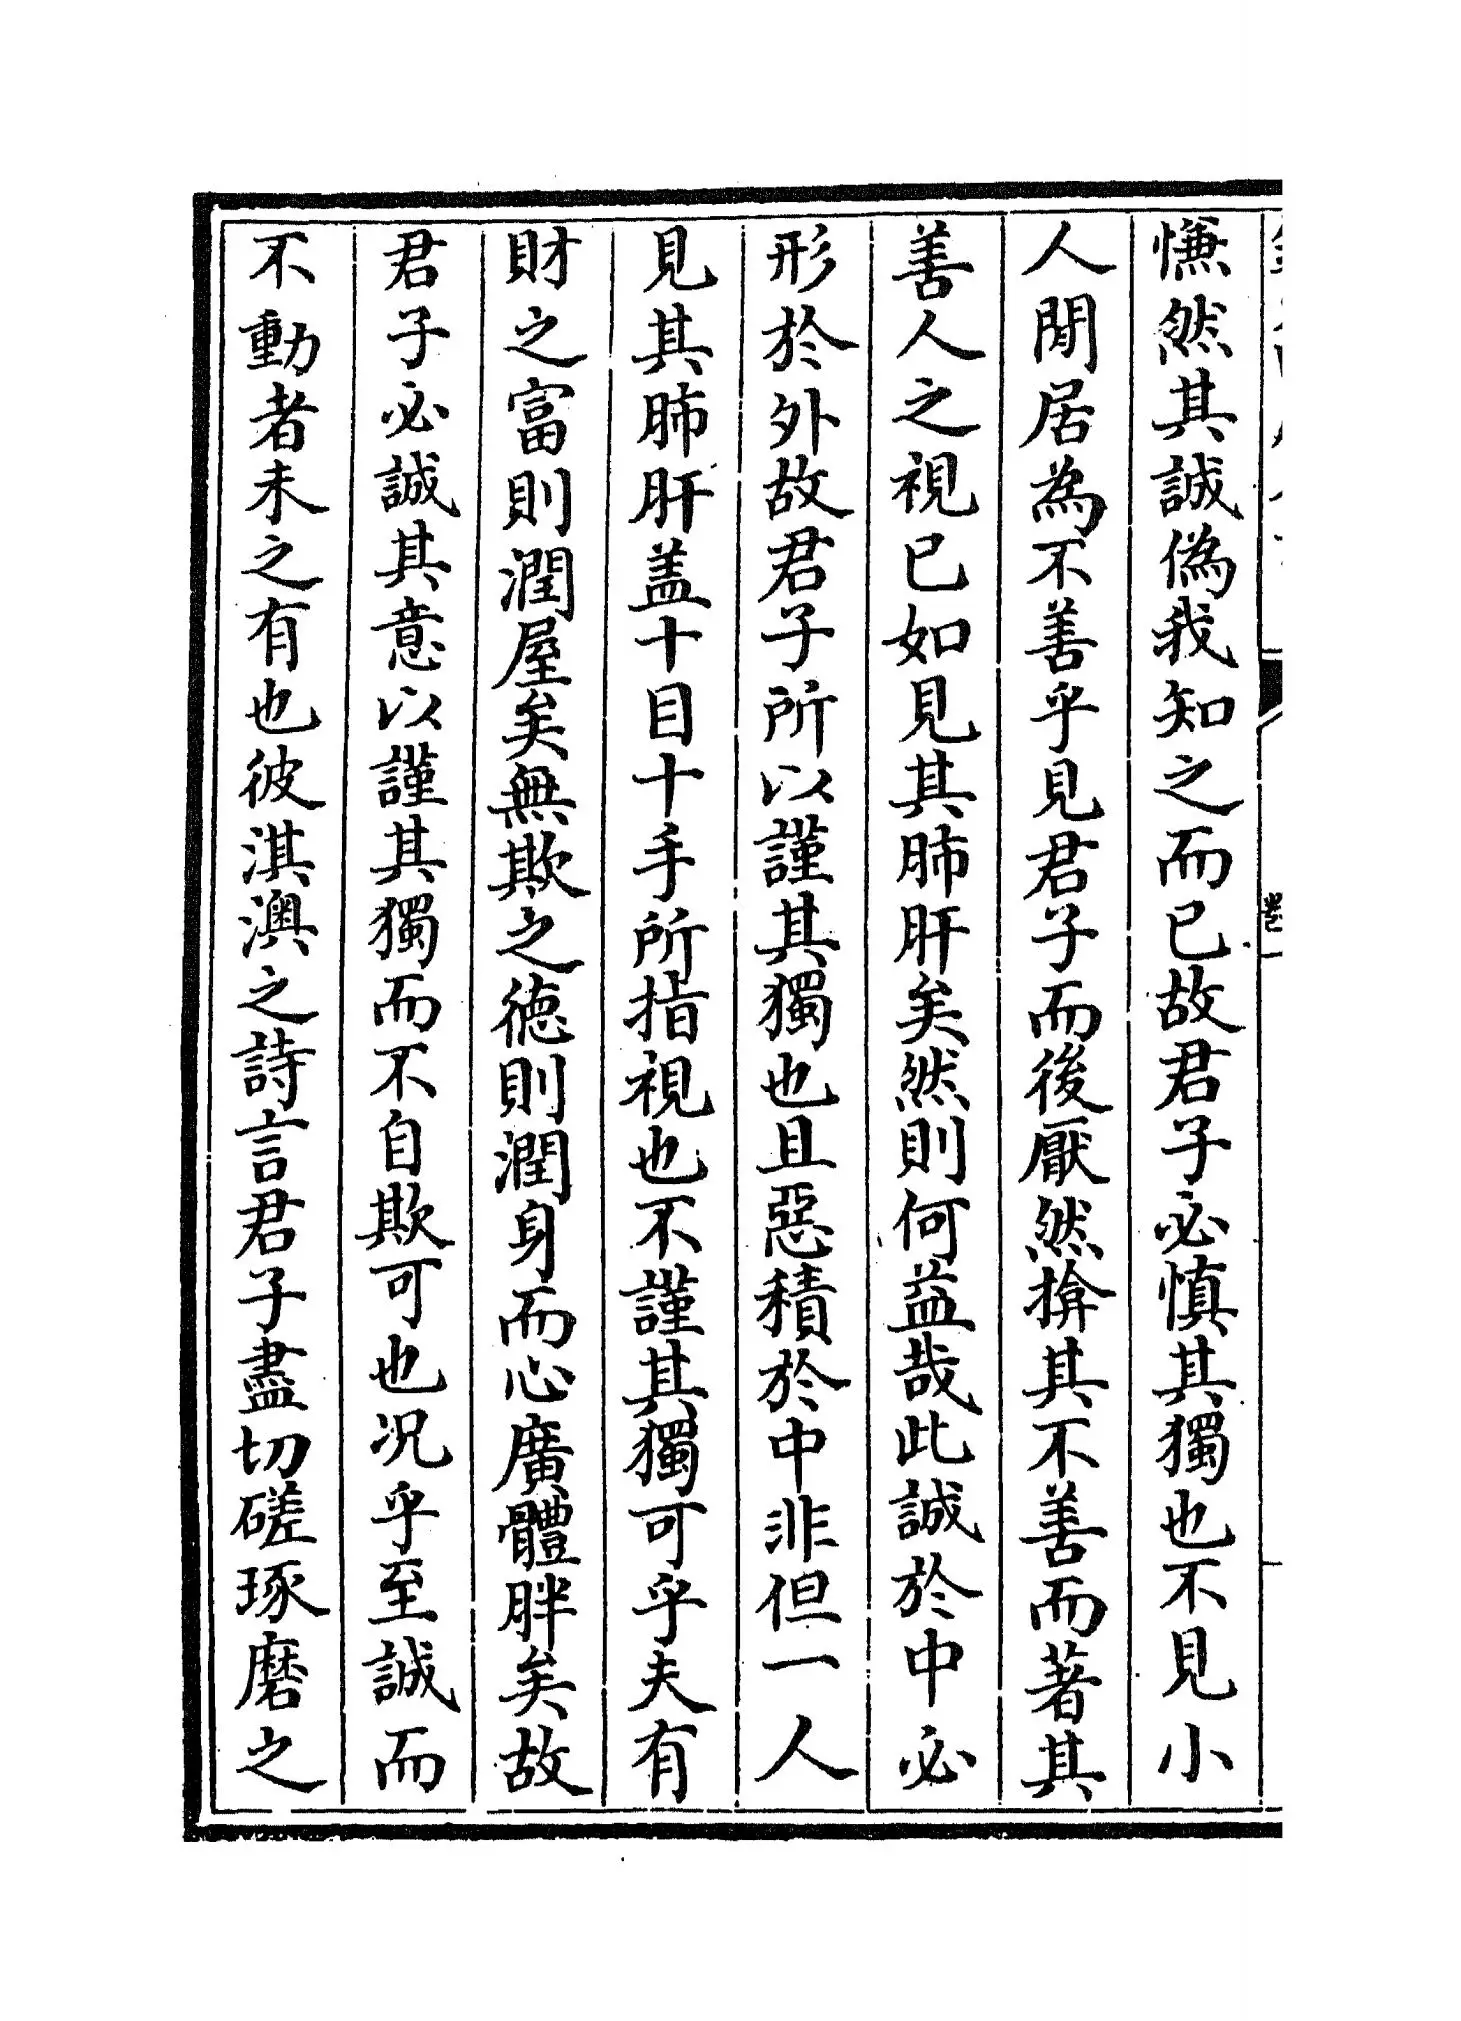 慊然其誠偽我知之而已故君子必慎其獨也不見小
人閒居為不善乎見君子而後厭然揜其不善而著其
善人之視已如見其肺肝矣然則何益哉此誠於中必
形於外故君子所以謹其獨也且惡積於中非但一人
見其肺肝盖十目十手所指視也不謹其獨可乎夫有
財之富則潤屋矣無欺之徳則潤身而心廣體胖矣故
君子必誠其意以謹其獨而不自欺可也况乎至誠而
不動者未之有也彼淇澳之詩言君子盡切磋琢磨之